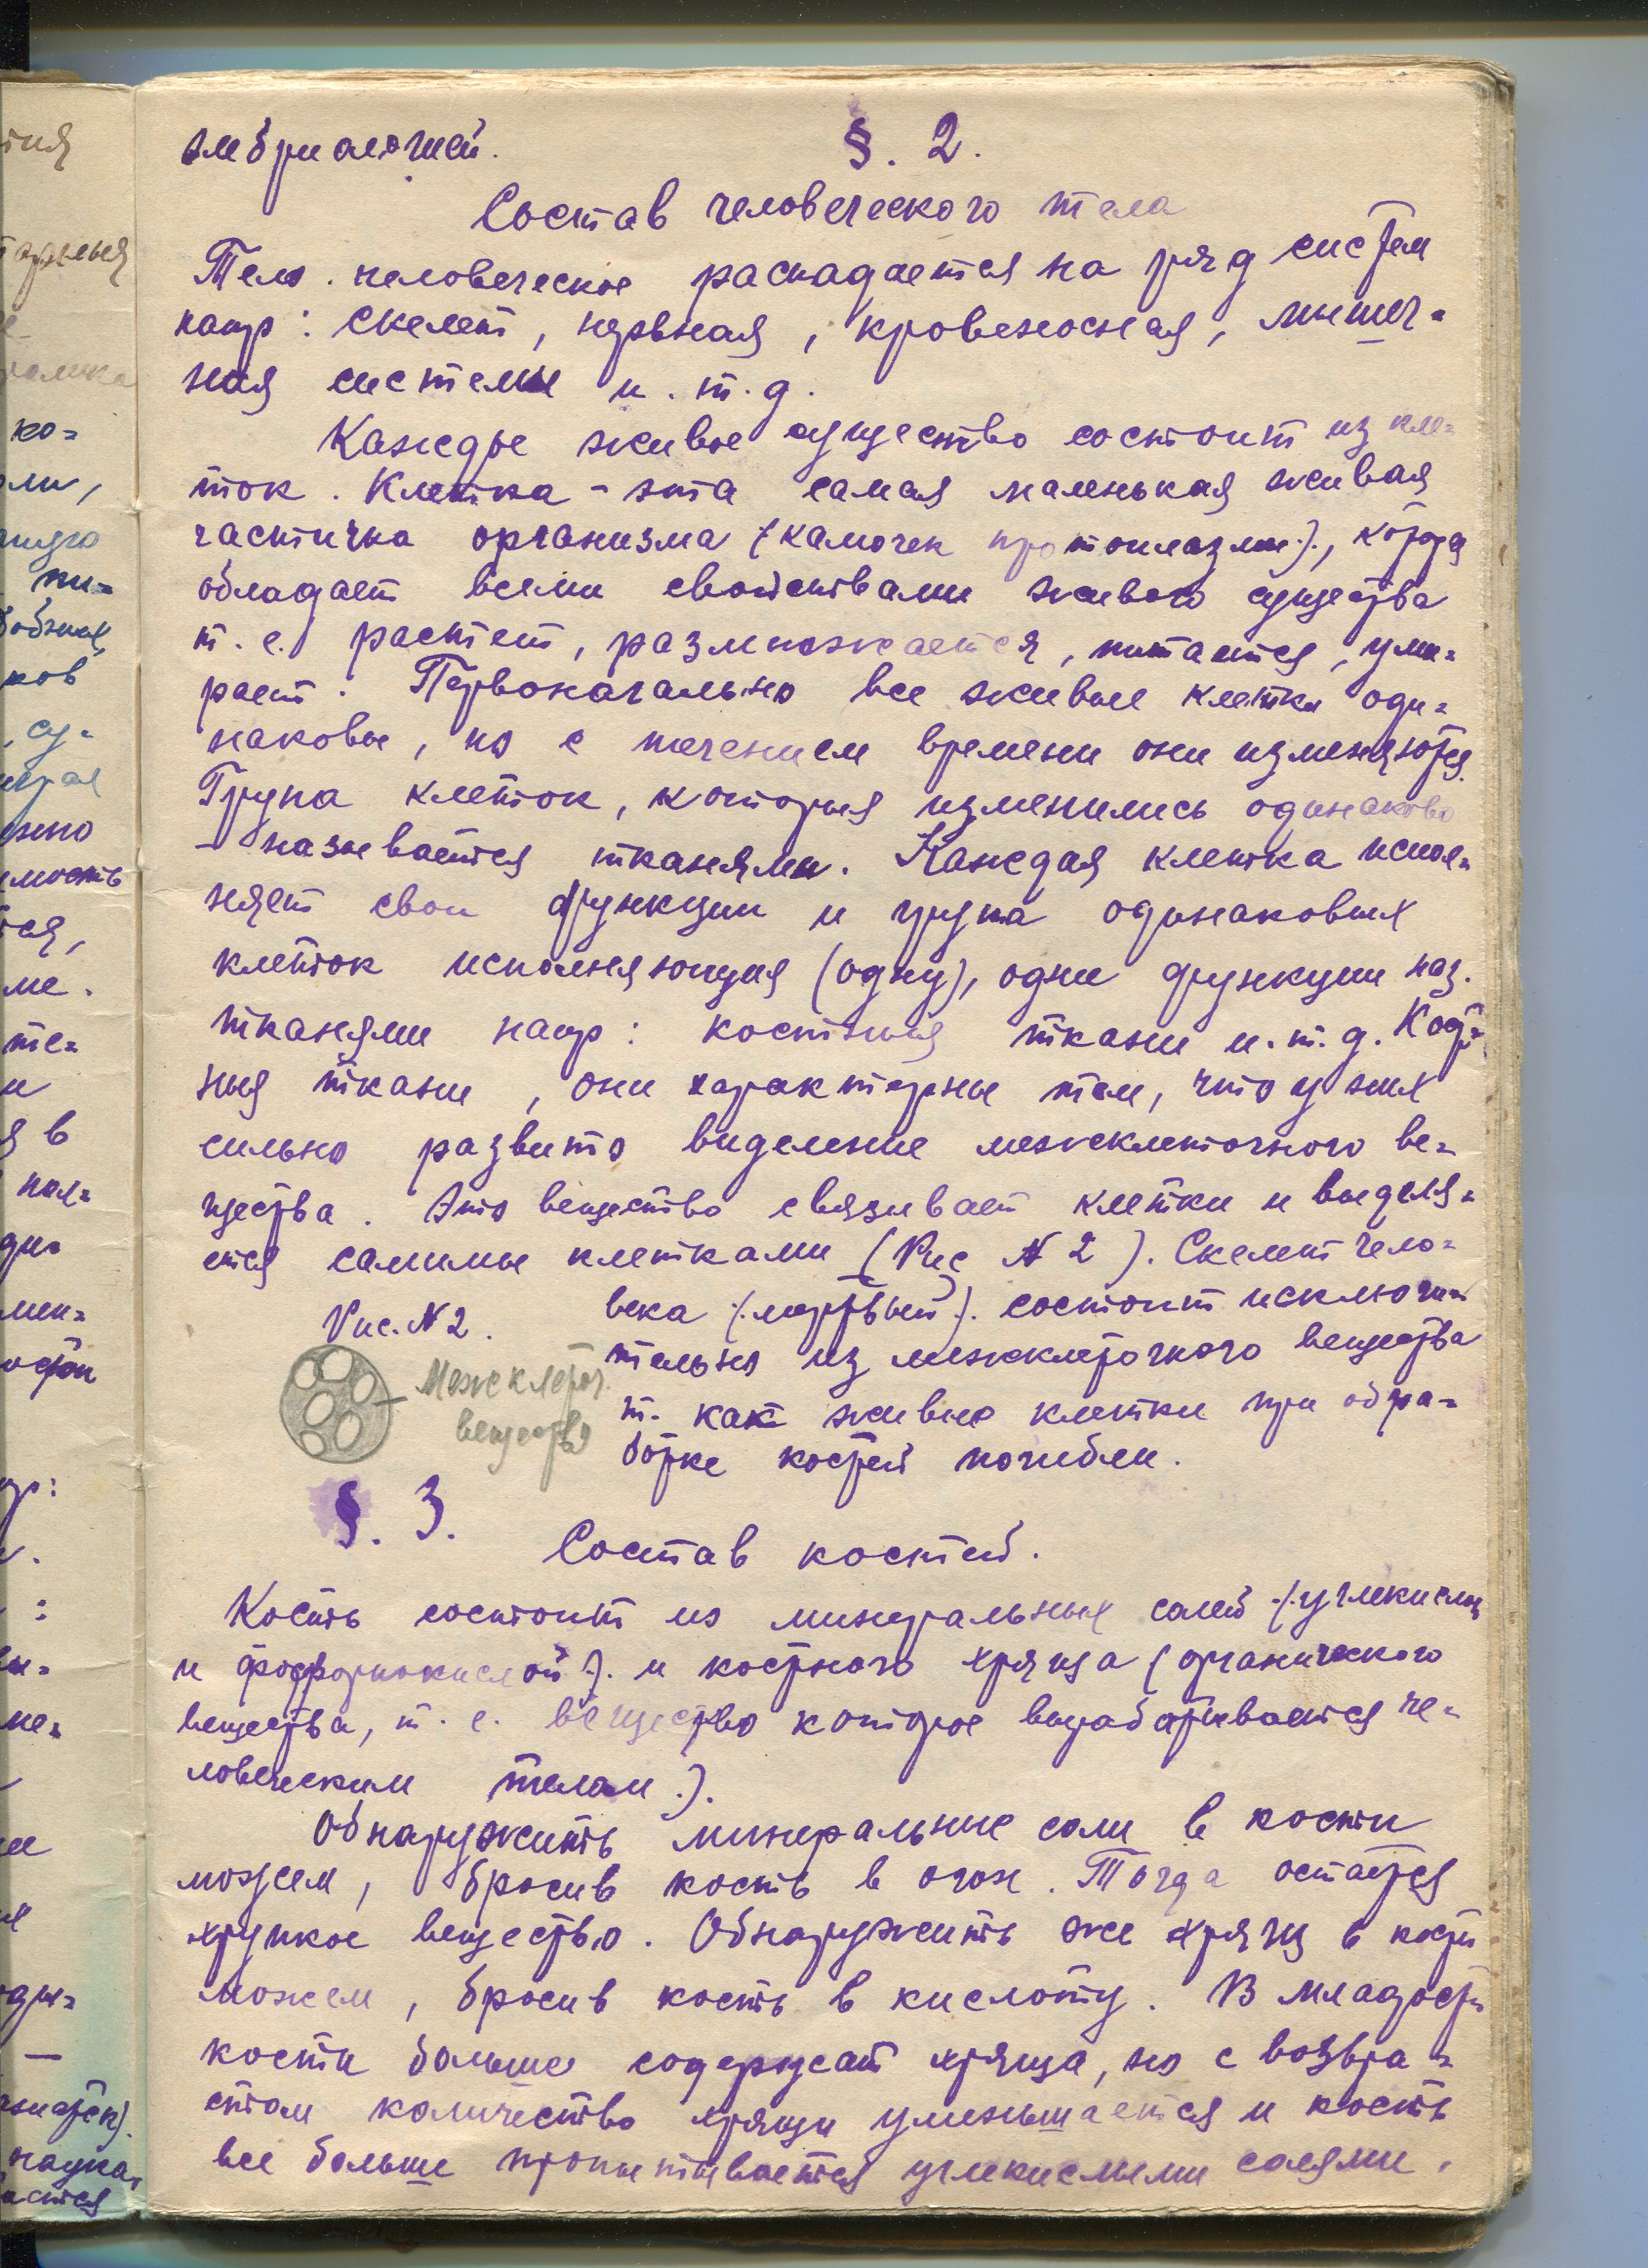 эмбриологией.
§. 2.
Состав человеческого тела
Тело человеческое распадается на ряд систем
напр: скелет, нервная, кровеносная, мышеч=
ная системы и. т. д.
Каждое живое существо состоит из кле=
ток. Клетка - эта самая маленькая живая
частичка организма (камочек протоплазмы)., котора
обладает всеми свойствами живого существа
т. е. растет, размножается, питается, уми=
рает. Первоначально все живые клетки оди=
наковы, но с течением времени они изменяются.
Група клеток, которыя изменились одинаково
- называется тканями. Каждая клетка испол=
няет свои функции и група одинаковых
клеток исполняющия (одну), одни функции наз.
тканями напр: костныя ткани и. т. д. Кост=
ныя ткани, они характерны тем, что у них
сильно развито виделение межклеточного ве=
щества. Это вещество связывает клетки и выделя=
ется самимы клетками (Рис № 2). Скелет чело=
века (мертвый). состоит исключи=
тельно из межклеточного вещества
т. как живые клетки при обра=
ботке костей погибли.
Рис. № 2.
Межклеточ.
вещество
§. 3.
Состав костей.
Кость состоит из минеральных солей (углекислой
и фосфорнокислой). и костного хряща (органического
вещества, т. е. вещество которое вырабатывается че=
ловеческим телом).
Обнаружить минеральные соли в кости
можем, бросив кость в огон. Тогда остается
хрупкое вещество. Обнаружить же хрящ в кости
можем, бросив кость в кислоту. В младости
кости больше содержат хряща, но с возвра=
стом количество хряща уменьшается и кость
все больше пропитывается углекислыми солями.